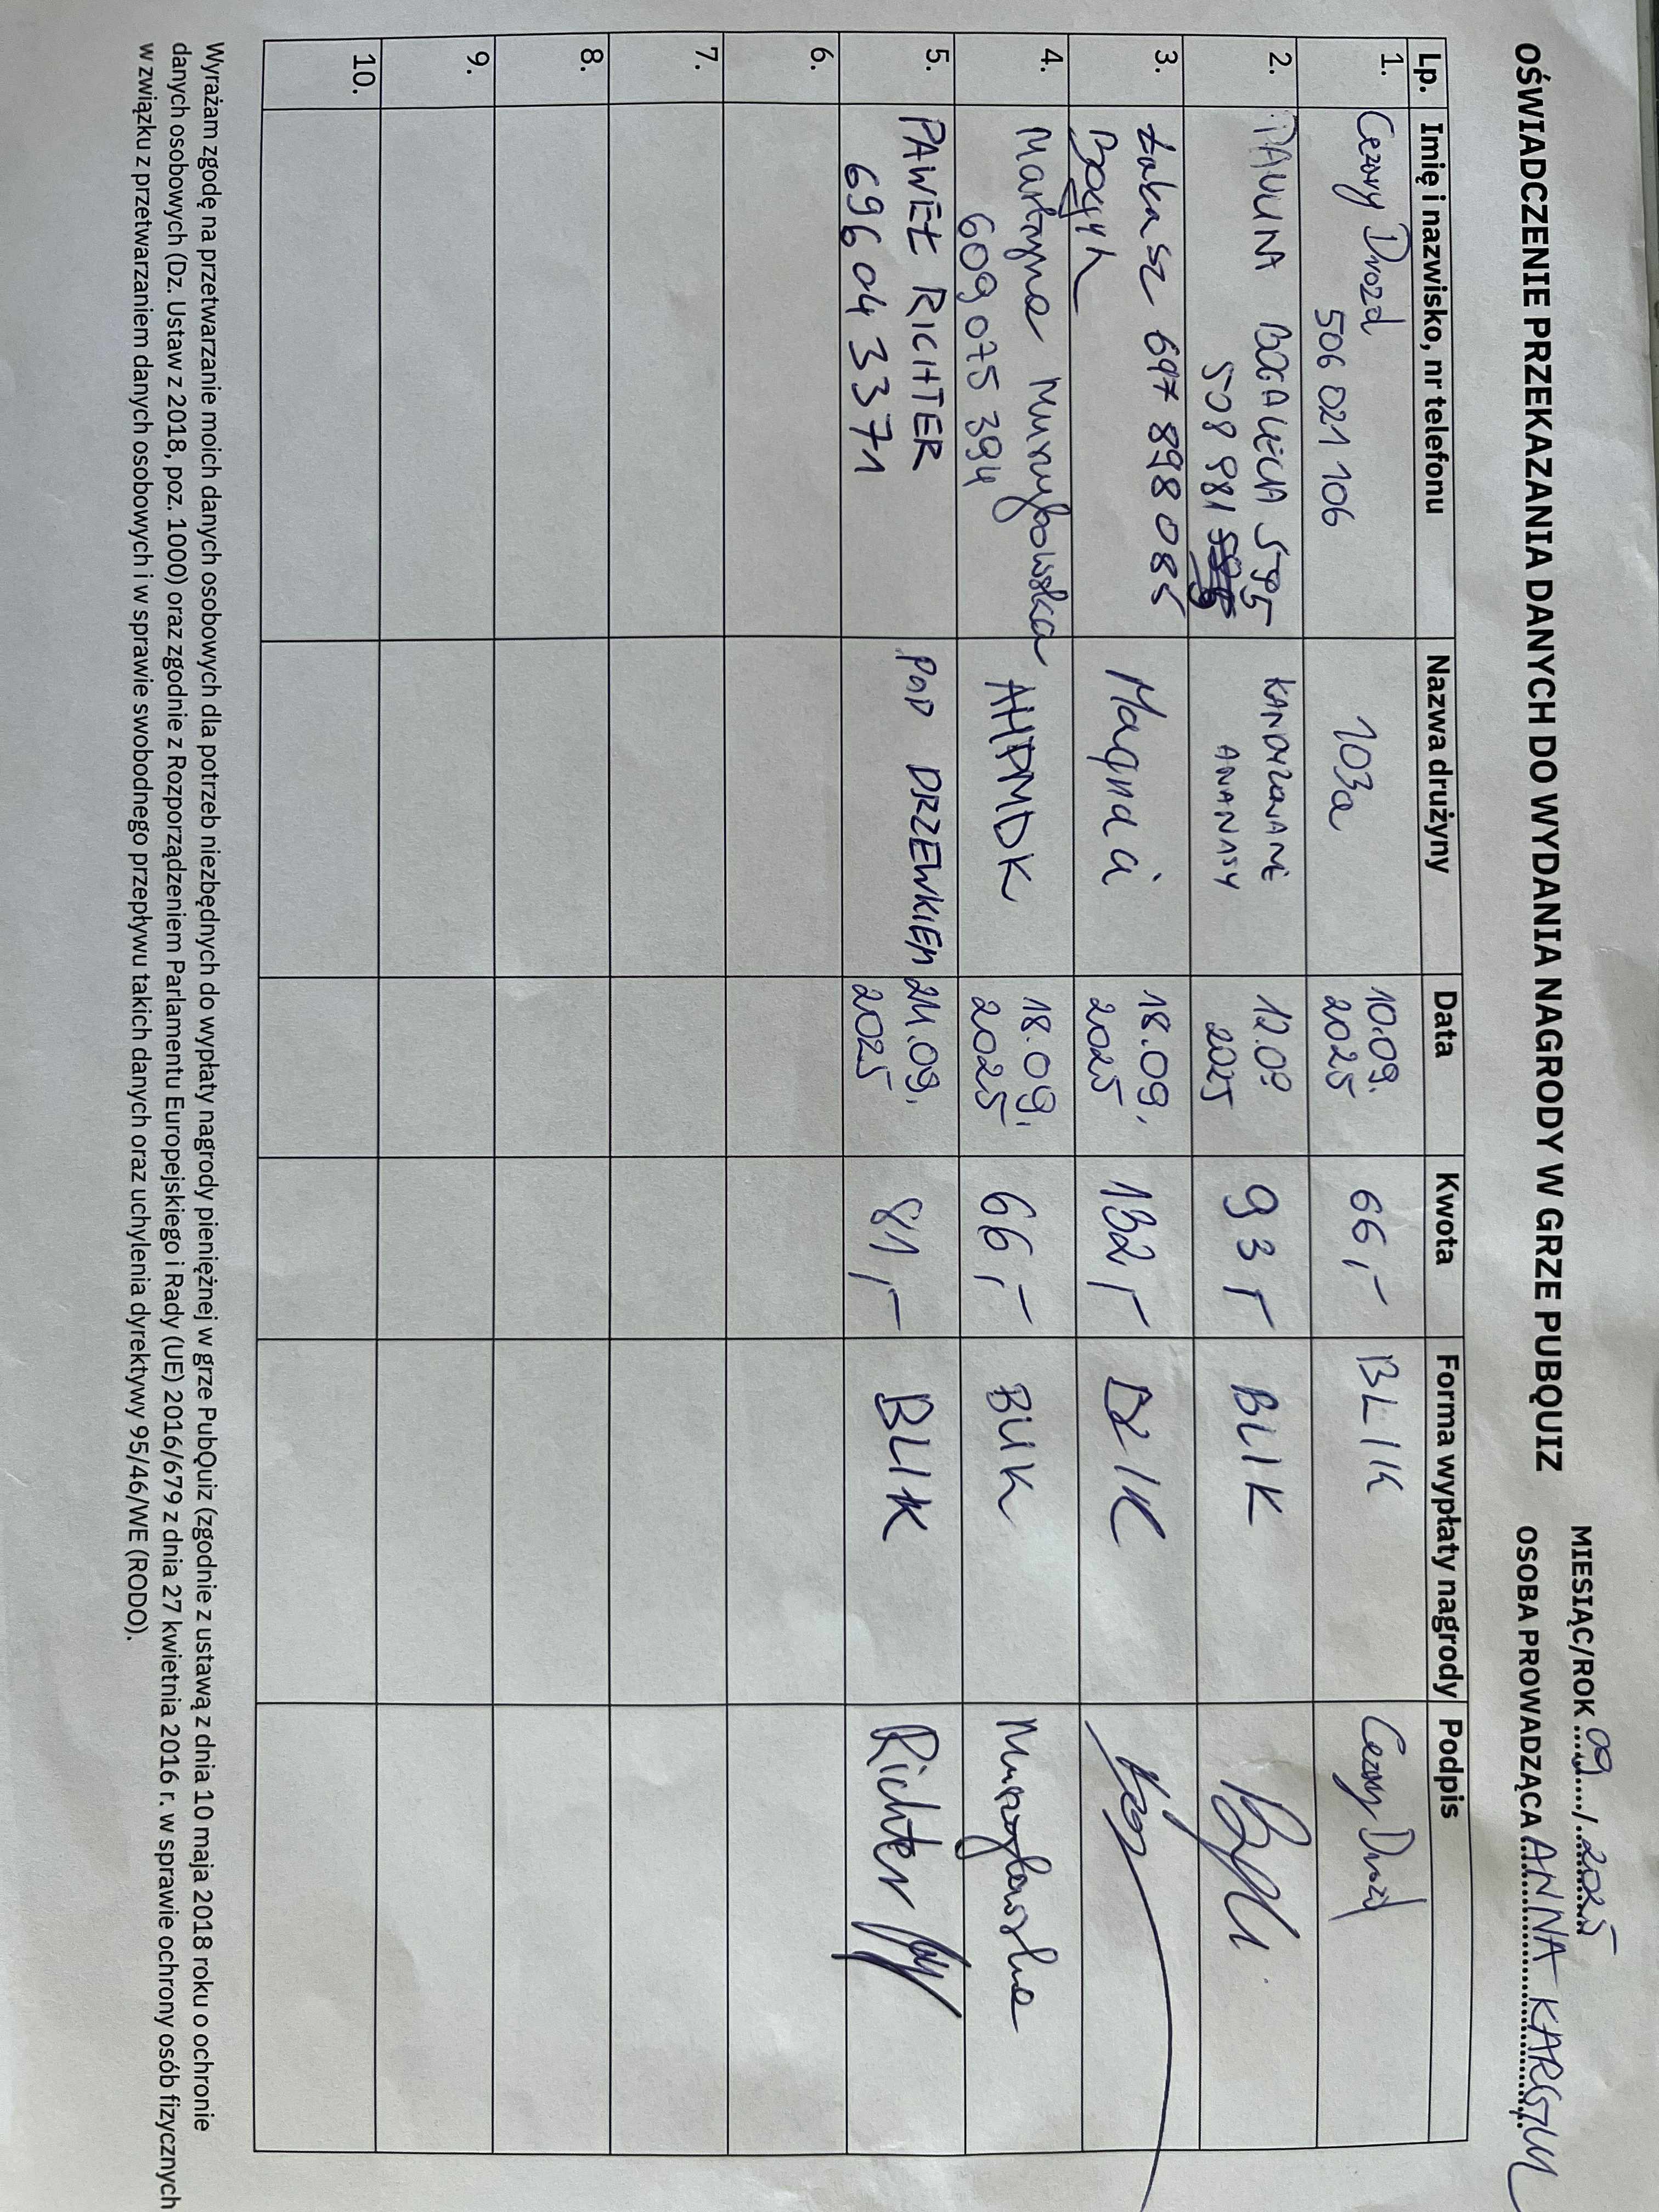 MIESIĄC/ROK 09 / 2025
OŚWIADCZENIE PRZEKAZANIA DANYCH DO WYDANIA NAGRODY W GRZE PUBQUIZ OSOBA PROWADZĄCA ANNA
Lp. Imię i nazwisko, nr telefonu Nazwa drużyny Data Kwota Forma wypłaty nagrody Podpis
1. Cezary Drozd 103a 10.09. 66,- BLIK Cezary Drozd
506 021 106 2025
2. PAULINA 595 KANDYZOWANE 12.09 93,- BLIK
508 981 ANANASY 2025
3. Łukasz 697 898 085 Magnaci 18.09. 132,- BLIK
2025
4. Martyna Murzybowska AHPMDK 18.09. 66,- BLIK
609 075 394 2025
5. PAWEŁ RICHTER POD DRZEWKIEM 24.09. 81,- BLIK Richter
696 04 33 71 2025
6.
7.
8.
9.
10.
Wyrażam zgodę na przetwarzanie moich danych osobowych dla potrzeb niezbędnych do wypłaty nagrody pieniężnej w grze PubQuiz (zgodnie z ustawą z dnia 10 maja 2018 roku o ochronie
danych osobowych (Dz. Ustaw z 2018, poz. 1000) oraz zgodnie z Rozporządzeniem Parlamentu Europejskiego i Rady (UE) 2016/679 z dnia 27 kwietnia 2016 r. w sprawie ochrony osób fizycznych
w związku z przetwarzaniem danych osobowych i w sprawie swobodnego przepływu takich danych oraz uchylenia dyrektywy 95/46/WE (RODO).